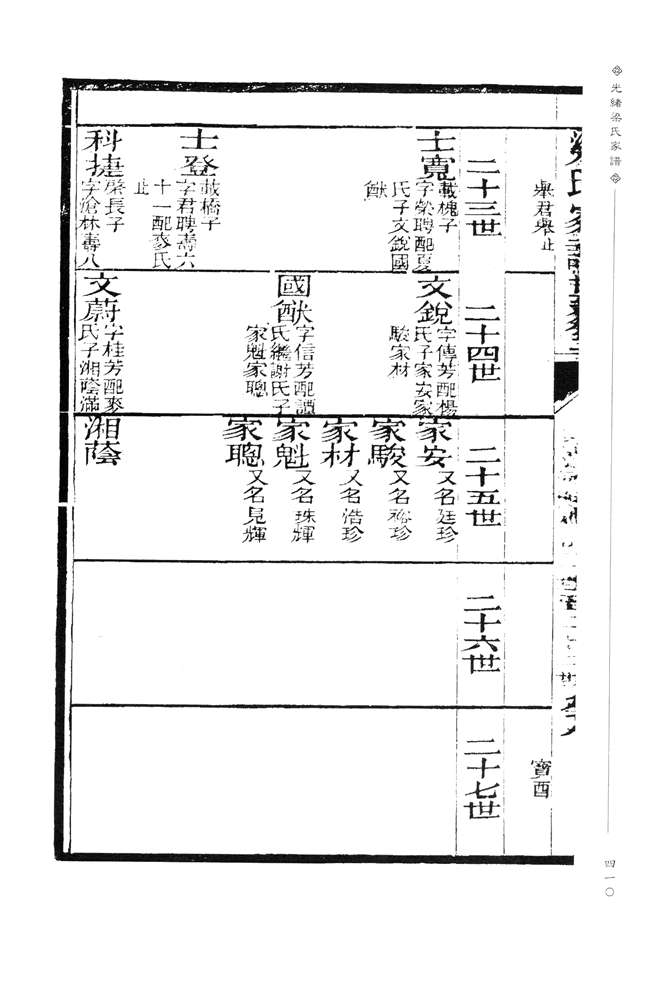 光緒梁氏家譜
梁氏家譜
舉君舉止
二十三世
士寬
載槐子
字榮聘配夏
氏子文銳國
猷
士登
載橋子
字君聘壽六
十一配麥氏
止
科捷
榮長子
字滄林壽八
二十四世
文銳
字傳芳配楊
氏子家安家
駿家材
國猷
字信芳配譚
氏繼謝氏子
家魁家聰
文蔚
字桂芳配麥
氏子湘蔭滿
二十五世
家安
又名廷珍
家駿
又名裕珍
家材
又名浩珍
家魁
又名珠輝
家聰
又名見輝
湘蔭
二十六世
寶酉
二十七世
四一〇